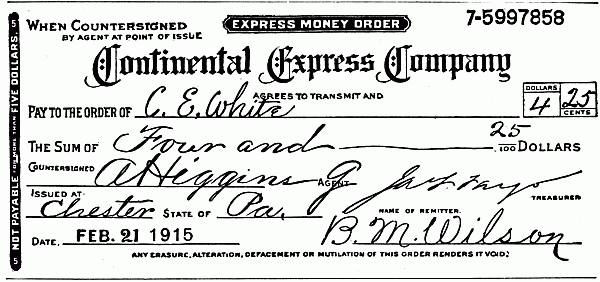 WHEN COUNTERSIGNED EXPRESS MONEY ORDER 7-5997858
BY AGENT AT POINT OF ISSUE
Continental Express Company
AGREES TO TRANSMIT AND
PAY TO THE ORDER OF C. E. White DOLLARS 4 25 CENTS
THE SUM OF Four and 25/100 DOLLARS
COUNTERSIGNED A Higgins AGENT
TREASURER
ISSUED AT Chester STATE OF Pa. NAME OF REMITTER.
DATE, FEB. 21 1915 B. M. Wilson
ANY ERASURE, ALTERATION, DEFACEMENT OR MUTILATION OF THIS ORDER RENDERS IT VOID.
5 NOT PAYABLE FOR MORE THAN FIVE DOLLARS. 5